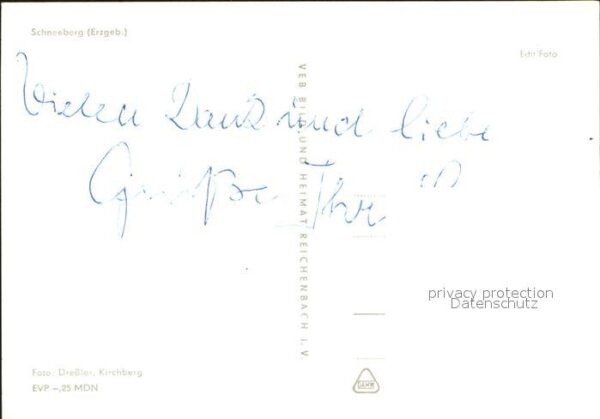 Schneeberg (Erzgeb.)
Echt Foto
Vielen Dank und liebe
Grüße Ihr
VEB BILD UND HEIMAT REICHENBACH i. V.
privacy protection
Datenschutz
Foto: Dreßler, Kirchberg
EVP -,25 MDN